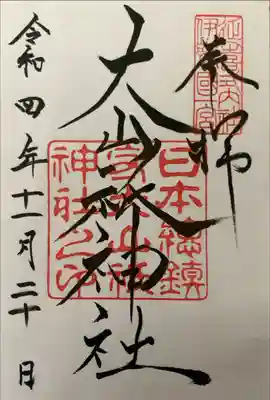 伊豫國一宮
奉拝
大山祇神社
日本總鎮
守大山祇
神社之印
令和四年十一月二十日